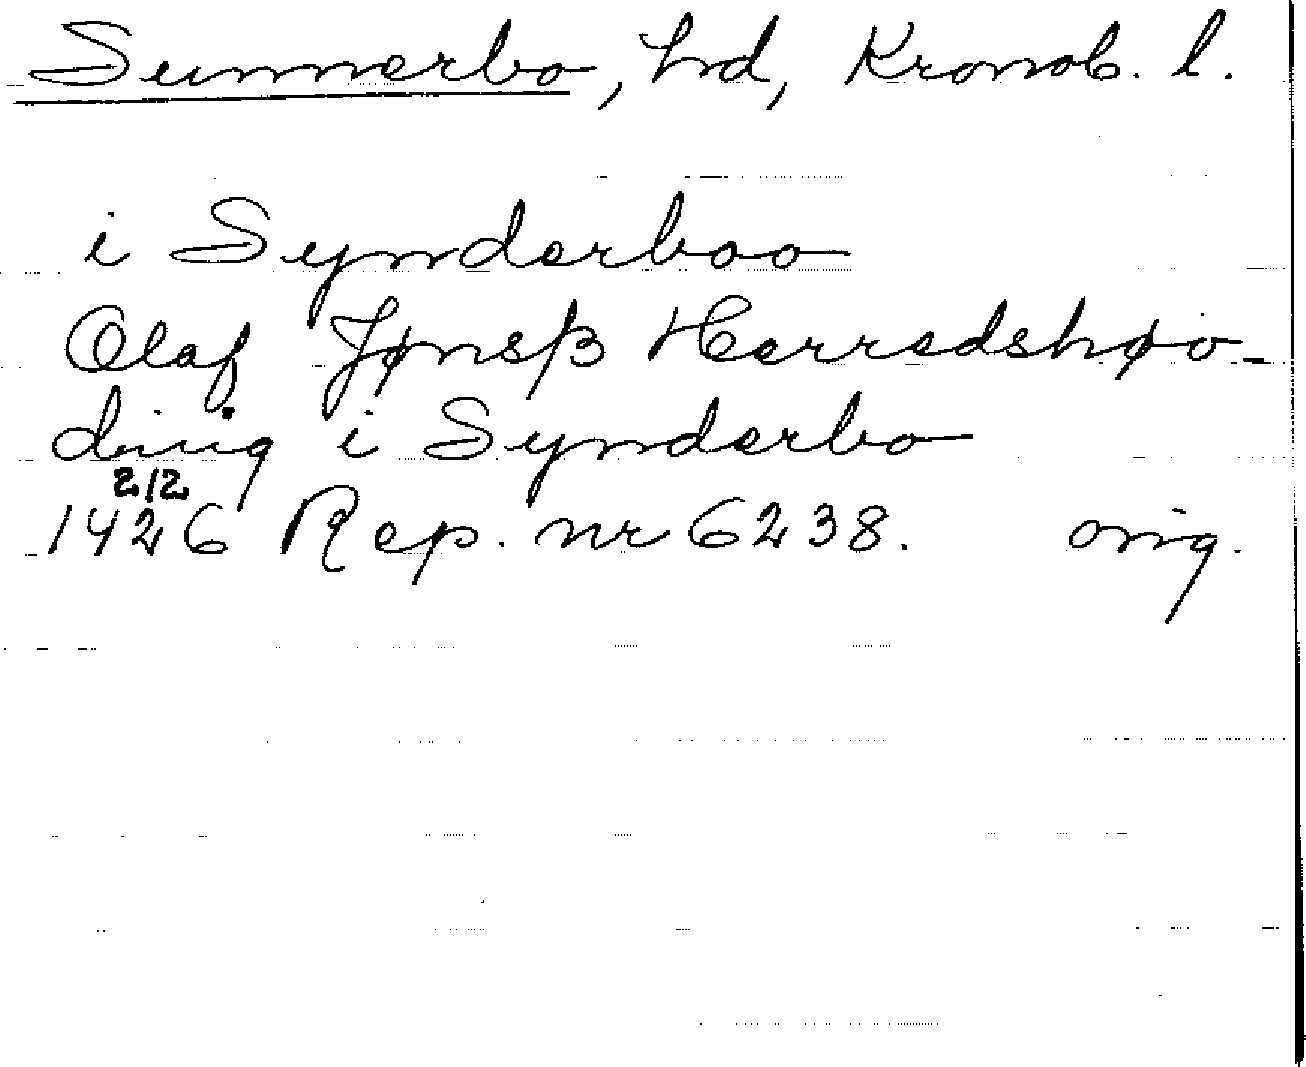 Sunnerbo, hd, Kronob. l.
i Synderboo
Olaf Jønsβ Herredshøo-
ding i Synderbo
2/2
1426 Rep. nr 6238. orig.